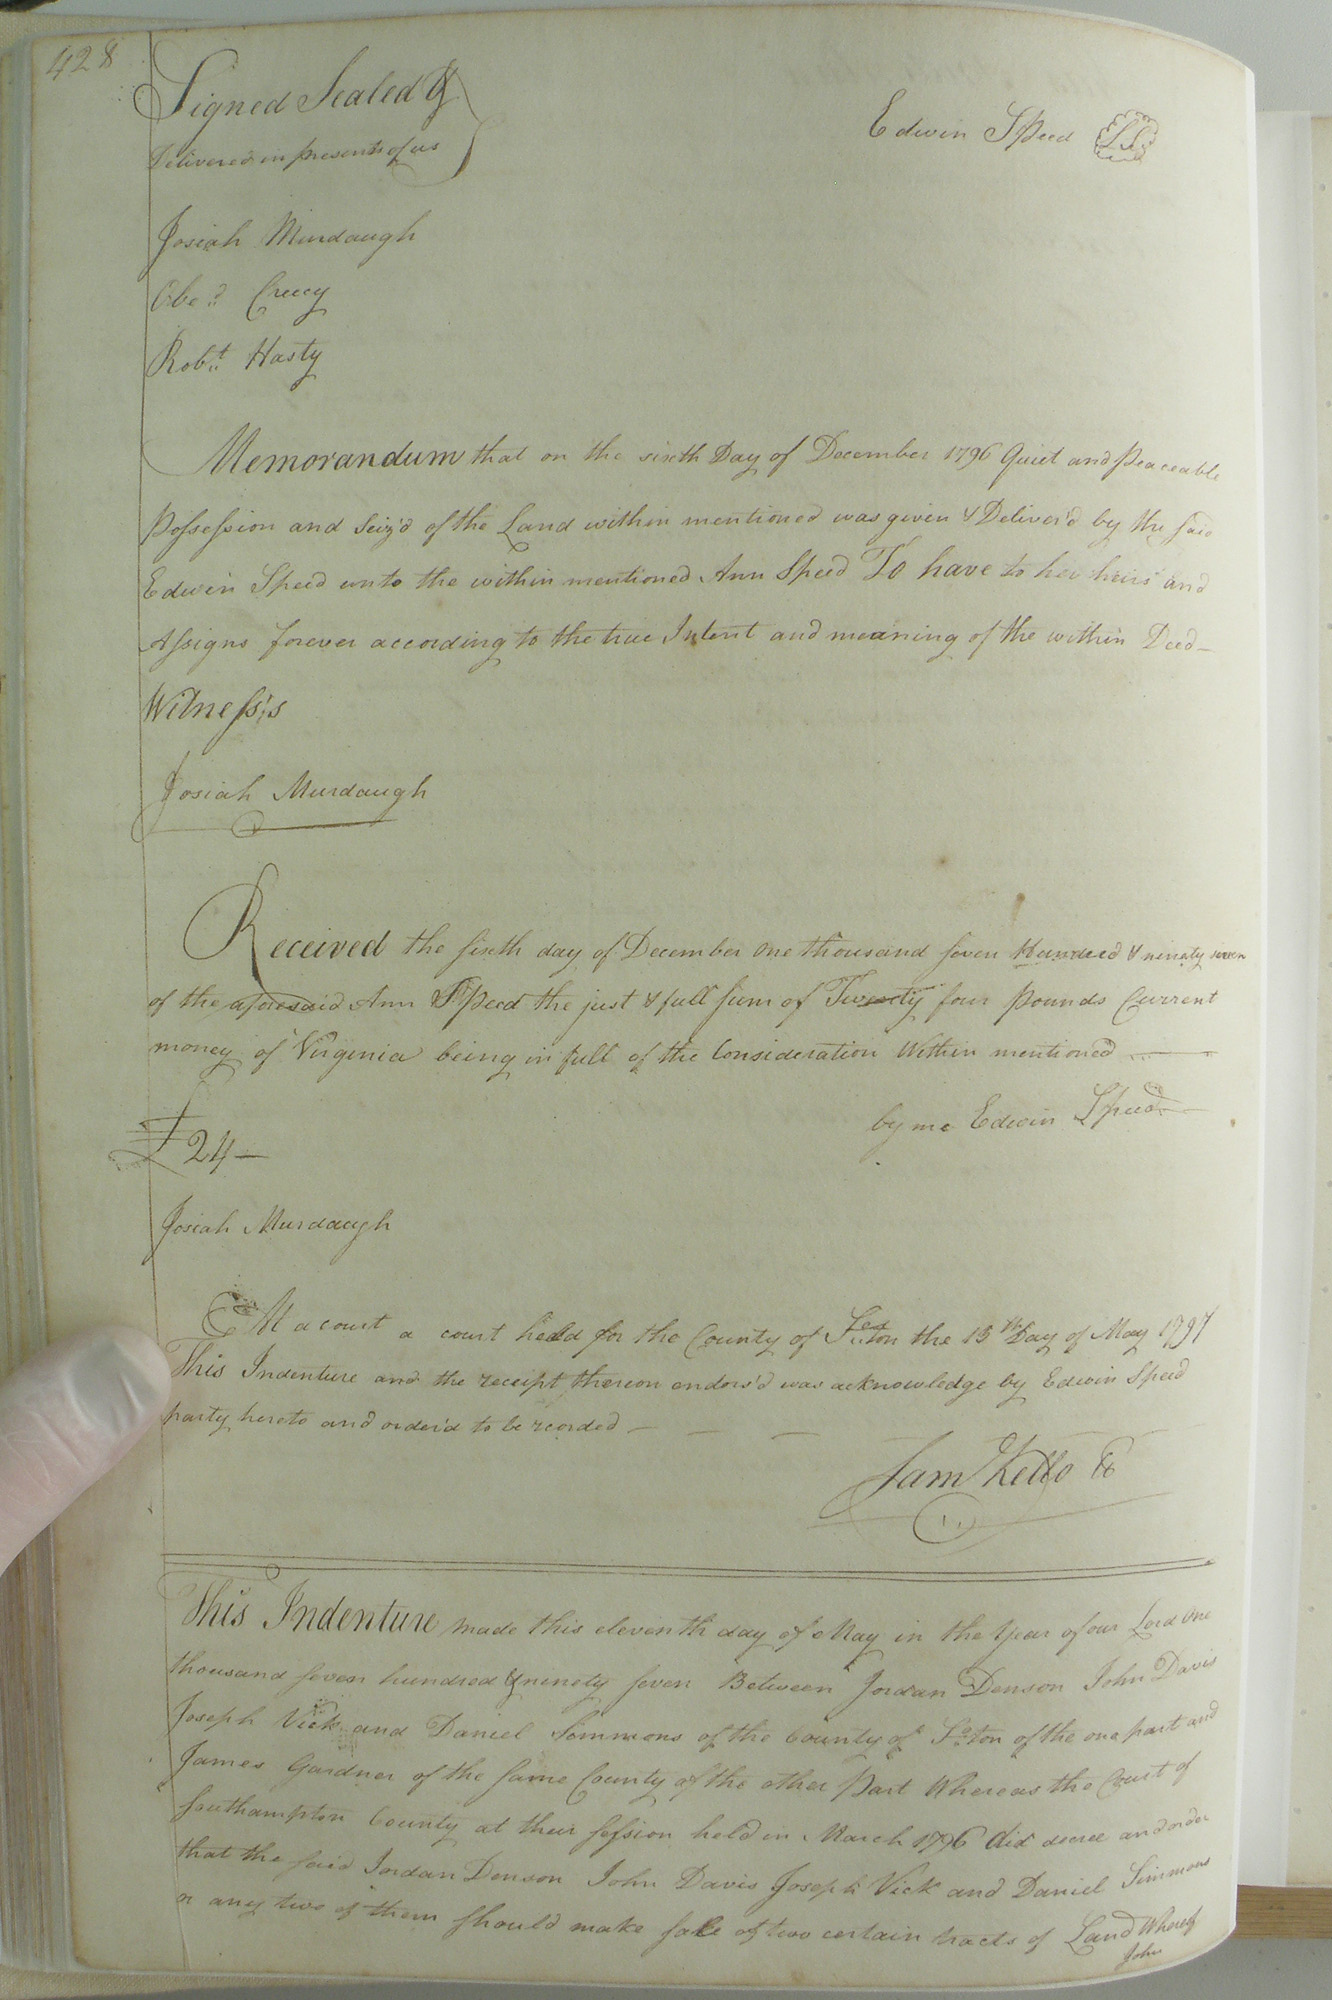 428
Signed Sealed &
Delivered in presents of us
Edwin Speed LS
Josiah Murdaugh
Obed. Creecy
Robt. Hasty
Memorandum that on the sixth Day of December 1796 Quiet and Peaceable
Possession and Seiz'd of the Land within mentioned was given & Deliver'd by the said
Edwin Speed unto the within mentioned Ann Speed To have to her heirs and
Assigns forever according to the true Intent and meaning of the within Deed—
Witness's
Josiah Murdaugh
Received the sixth day of December One thousand seven Hundred & ninety seven
of the aforesaid Ann Speed the just & full sum of Twenty four Pounds Current
money of Virginia being in full of the Consideration Within mentioned —
by me Edwin Speed
£24—
Josiah Murdaugh
At a court a court held for the County of So.ton the 15th Day of May 1797
This Indenture and the receipt thereon endors'd was acknowledge by Edwin Speed
party hereto and order'd to be recorded — — —
Sam Kello
This Indenture made this eleventh day of May in the Year of our Lord One
thousand seven hundred & ninety seven Between Jordan Denson John Davis
Joseph Vick and Daniel Simmons of the County of So.ton of the one part and
James Gardner of the same County of the other Part Whereas the Court of
Southampton County at their session held in March 1796 did decree and order
that the said Jordan Denson John Davis Joseph Vick and Daniel Simmons
or any two of them should make sale of two certain tracts of Land Whereof
John